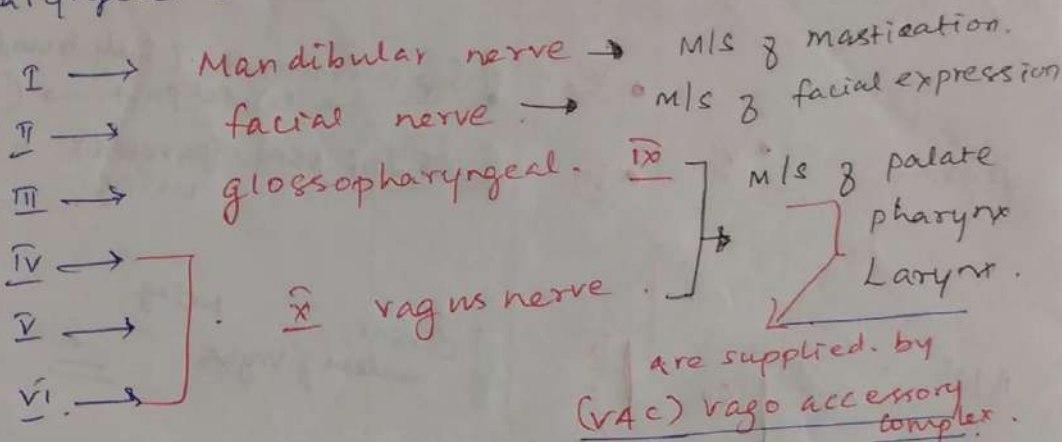 I → Mandibular nerve → M/s of mastication.
II → facial nerve. → M/s of facial expression
III → glossopharyngeal. IX
M/s of palate
pharynx
Larynx.
IV →
V →
VI. →
X vagus nerve.
are supplied. by
(VAC) vago accessory
complex.